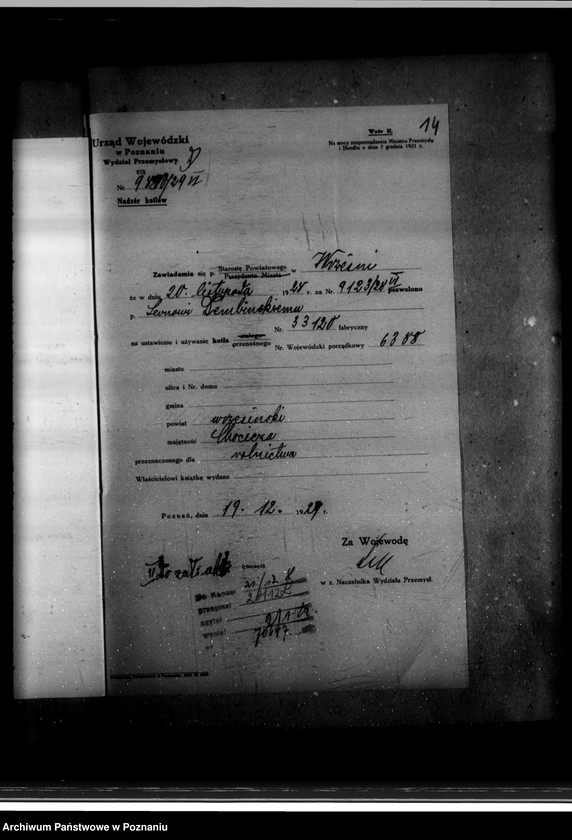 14
Urząd Wojewódzki
w Poznaniu
Wydział Przemysłowy
Wzór E.
Na mocy rozporządzenia Ministra Przemysłu
i Handlu z dnia 7 grudnia 1921 r.
Nr. /29 VI
Nadzór kotłów
Zawiadamia się p. Starostę Powiatowego w Wrześni
Prezydenta Miasta
że w dniu 20. listopada 1928 r. za Nr. 9123/28 VI pozwolono
p. Dembińskiemu
Nr. 33120 fabryczny
na ustawienie i używanie kotła stałego
przenośnego Nr. Wojewódzki porządkowy 6388
miasto
ulica i Nr. domu
gmina
powiat wrzesiński
majętność Chocicza
przeznaczonego dla rolnictwa
Właścicielowi książkę wydano
Poznań, dnia 19. 12. 1929 r.
Za Wojewodę
w z. Naczelnika Wydziału Przemysł.
(pieczęć)
Do Kanc.
przepisał
czytał
wysłał
Archiwum Państwowe w Poznaniu